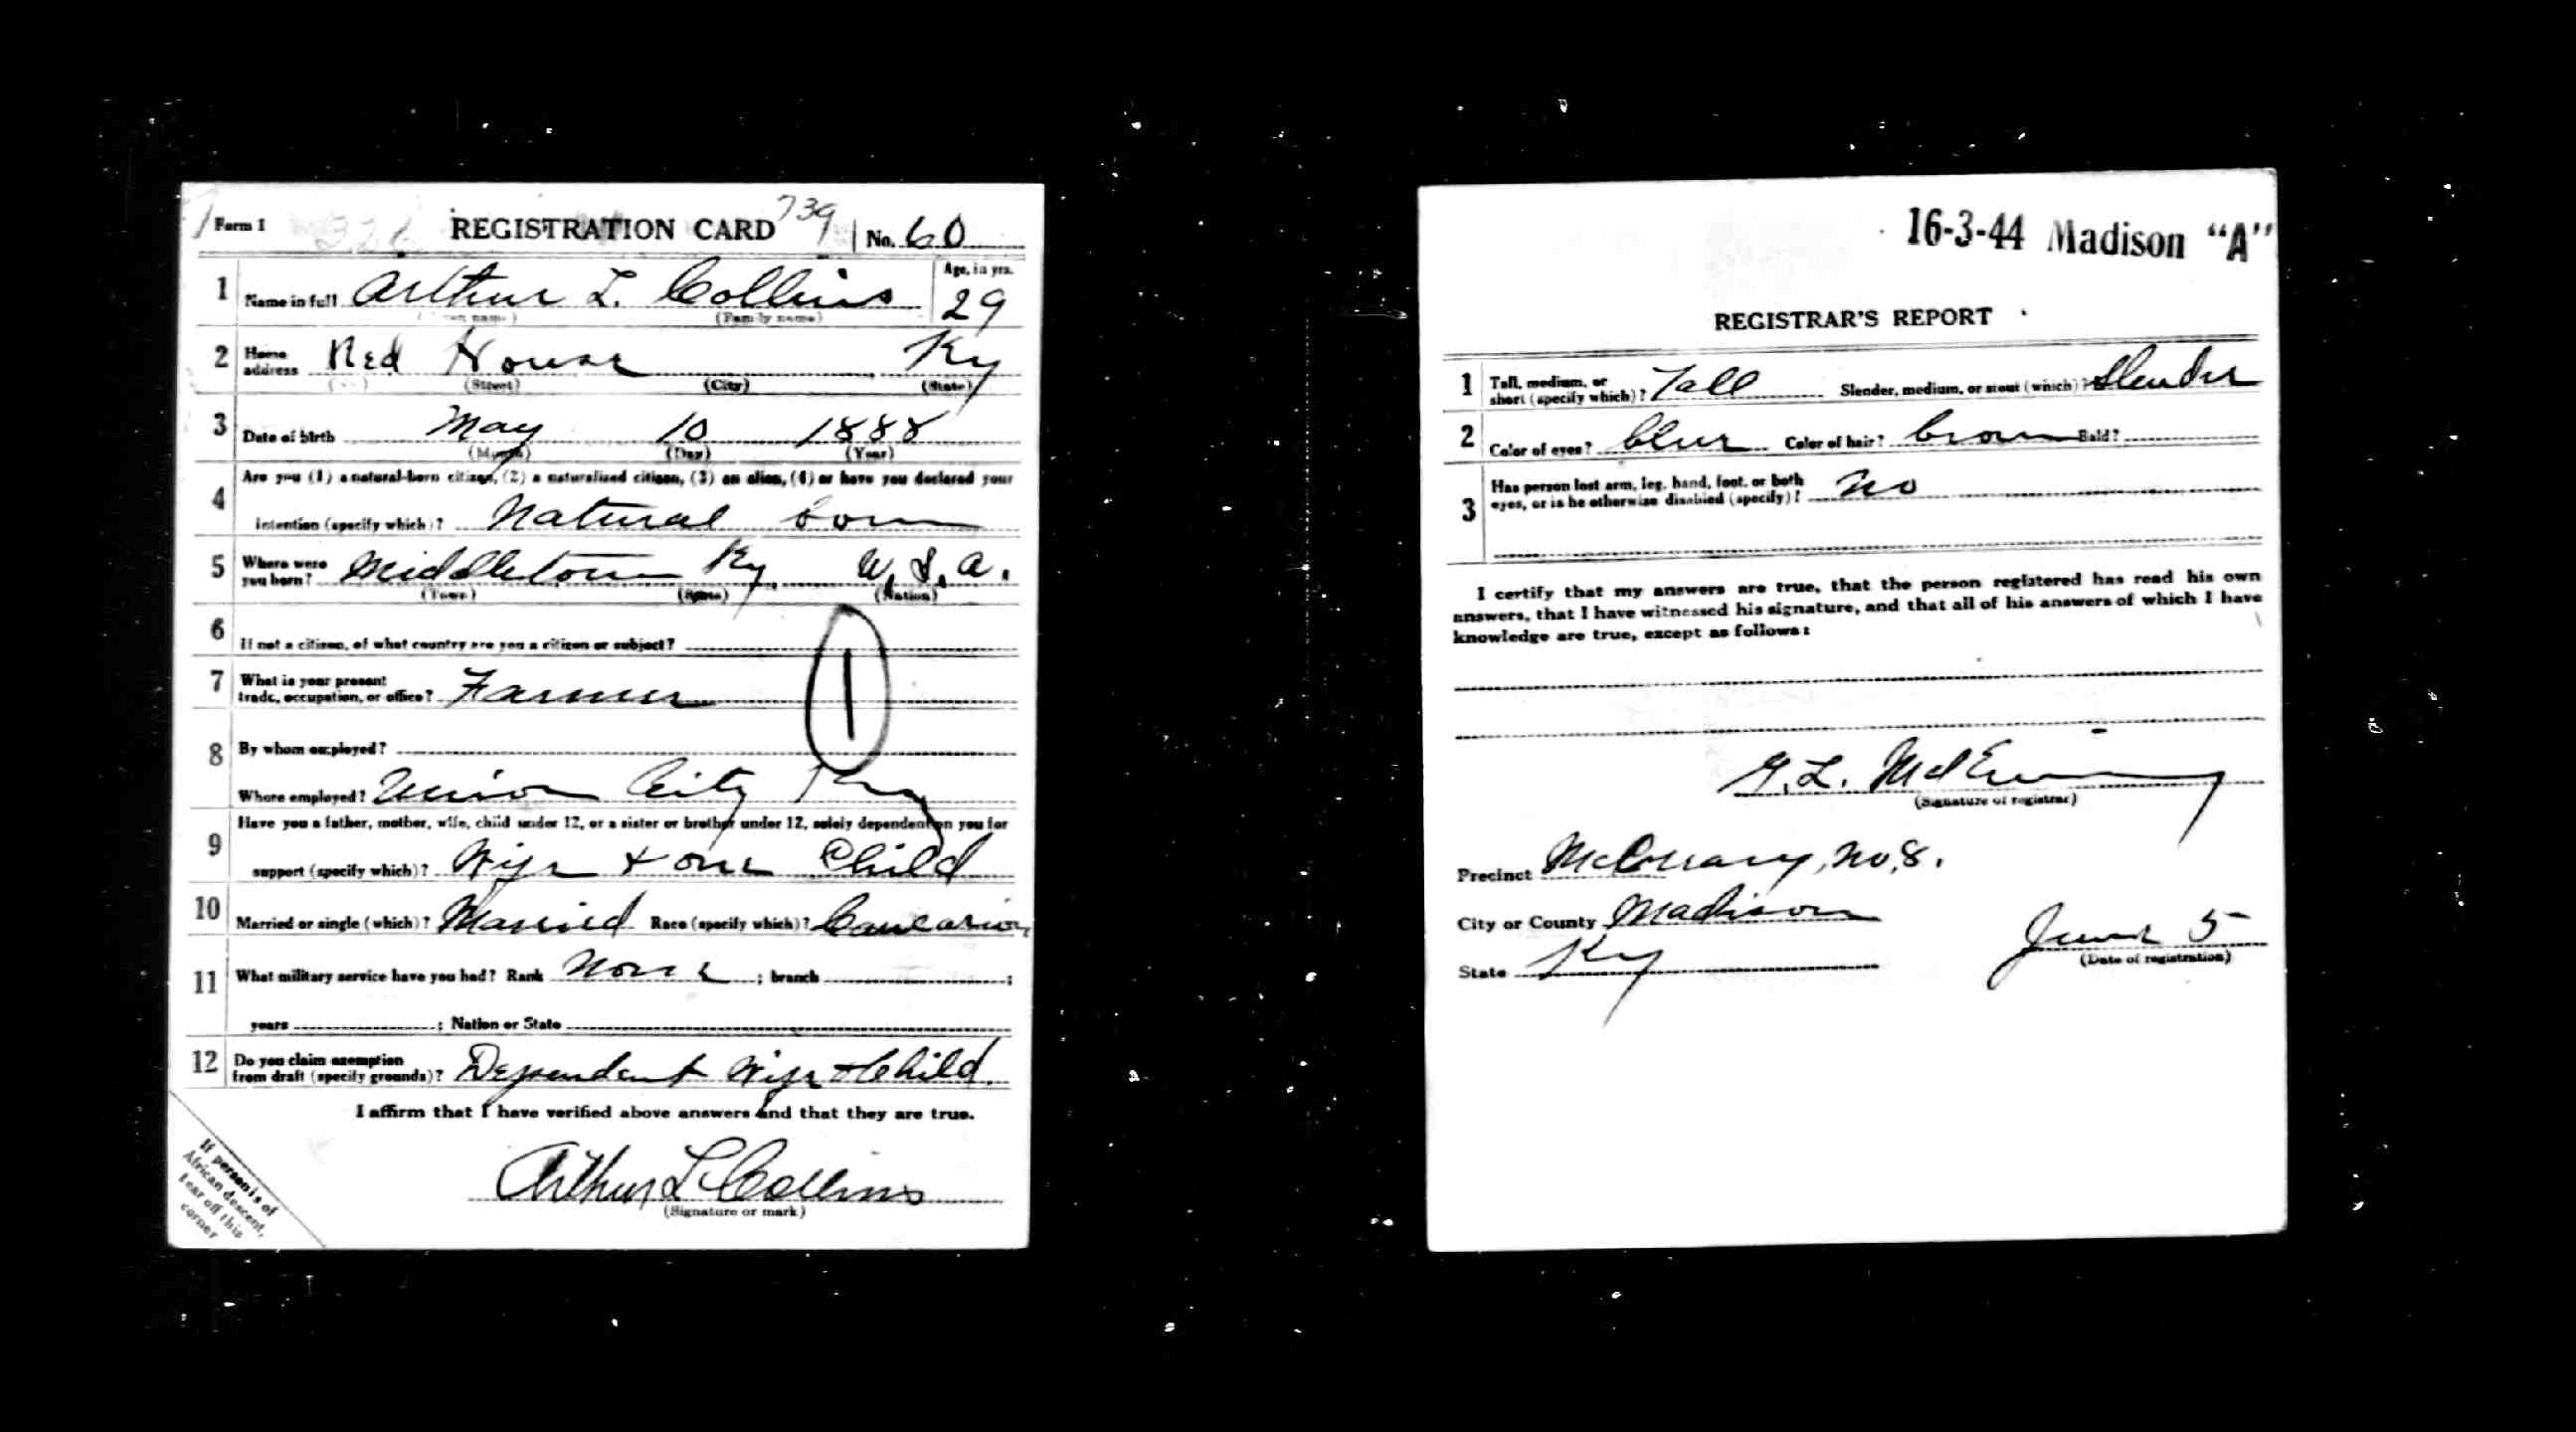 Form 1 REGISTRATION CARD 739 No. 60
1 Name in full Arthur L. Collins Age, in yrs. 29
(Family name)
2 Home address Red House Ky
(Street) (City) (State)
3 Date of birth May 10 1888
(Month) (Day) (Year)
4 Are you (1) a natural-born citizen, (2) a naturalized citizen, (3) an alien, (4) or have you declared your
intention (specify which)? Natural born
5 Where were you born? Middletown Ky U.S.A.
(Town) (State) (Nation)
6 If not a citizen, of what country are you a citizen or subject?
7 What is your present trade, occupation, or office? Farmer 1
8 By whom employed?
Where employed? Union City Ky
9 Have you a father, mother, wife, child under 12, or a sister or brother under 12, solely dependent on you for
support (specify which)? Wife + one Child
10 Married or single (which)? Married Race (specify which)? Caucasion
11 What military service have you had? Rank None ; branch ;
years ; Nation or State
12 Do you claim exemption from draft (specify grounds)? Dependent Wife + Child.
I affirm that I have verified above answers and that they are true.
Arthur L Collins
(Signature or mark)
If person is of
African descent,
tear off this
corner
16-3-44 Madison "A"
REGISTRAR'S REPORT
1 Tall, medium, or short (specify which)? Tall Slender, medium, or stout (which)? Slender
2 Color of eyes? blue Color of hair? brown Bald?
3 Has person lost arm, leg, hand, foot, or both
eyes, or is he otherwise disabled (specify)? No
I certify that my answers are true, that the person registered has read his own
answers, that I have witnessed his signature, and that all of his answers of which I have
knowledge are true, except as follows:
(Signature of registrar)
Precinct No, 8.
City or County Madison
State Ky June 5
(Date of registration)